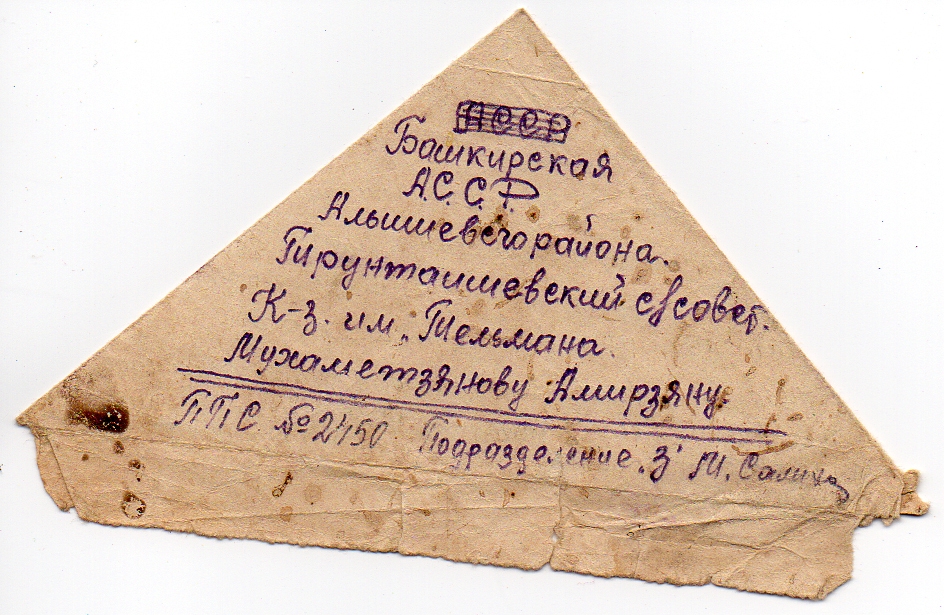 АССР
Башкирская
А.С.С.Р
Альшиевсго района.
Тирунташшевский с/совет.
К-з. им. "Тельмана.
Мухаметзянову Амирзяну.
ППС №2450 Подразделение "З" М. Салих